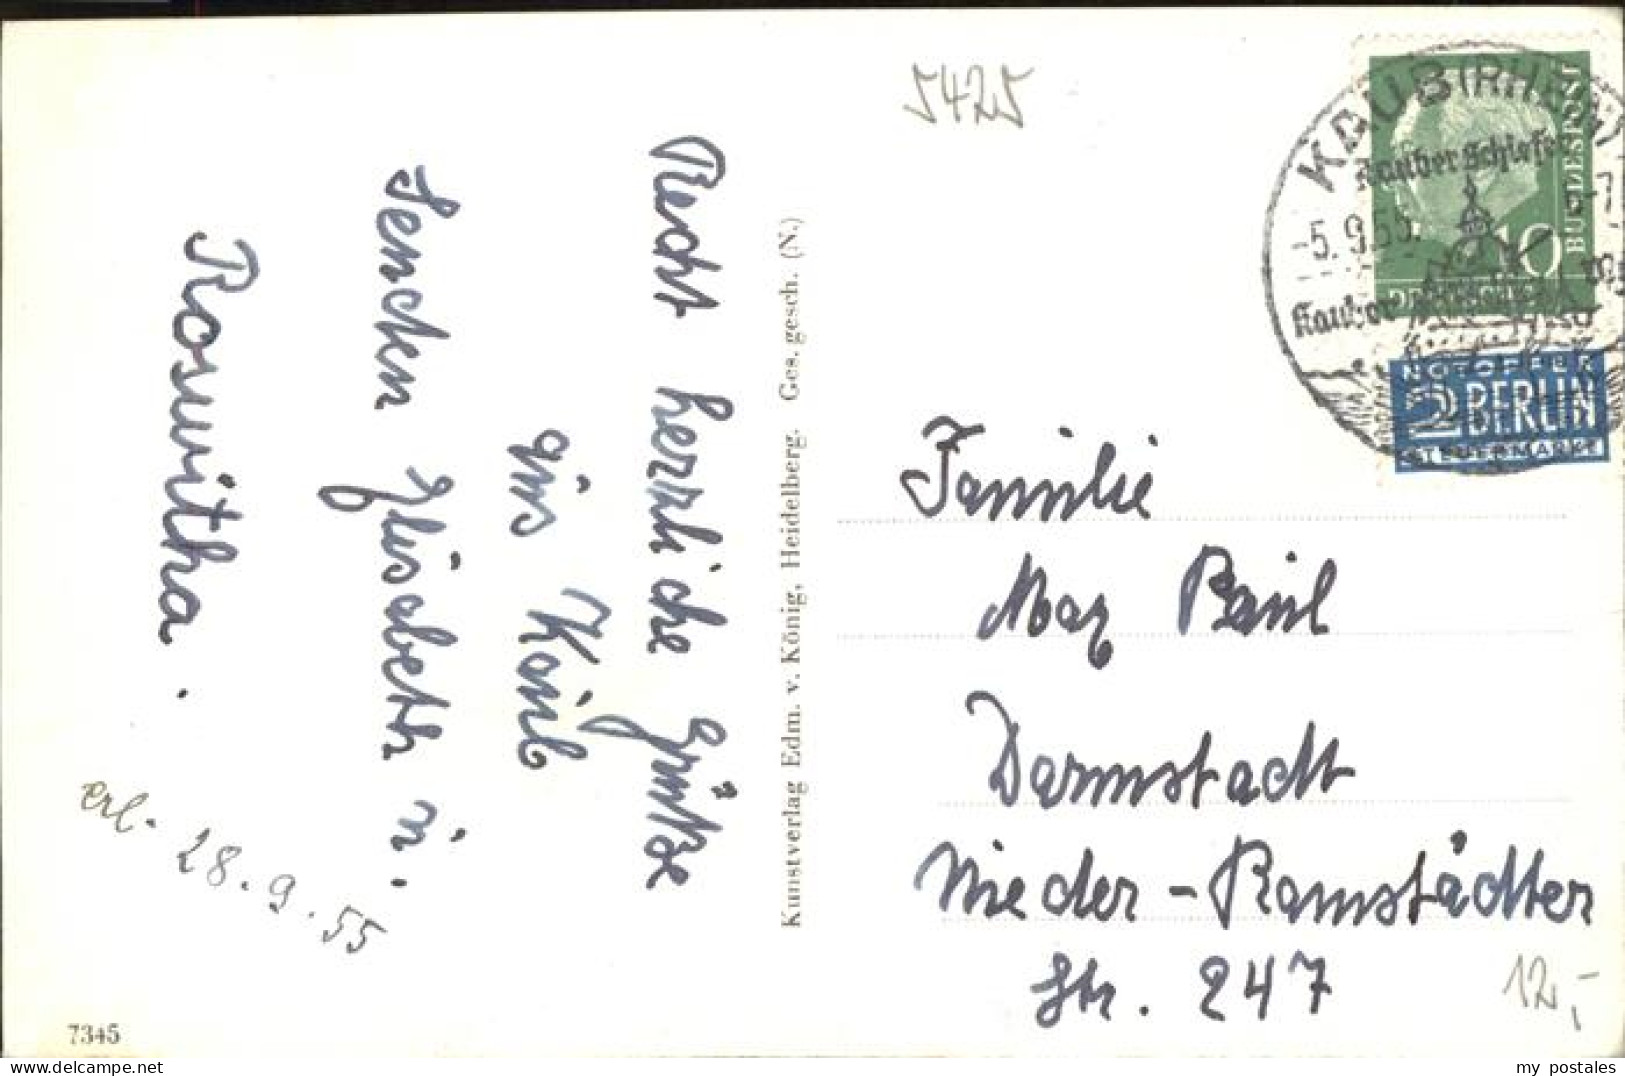 Recht herzliche Grüße
aus Kaub
senden Elisabeth u.
Roswitha.
erl. 28.9.55
7345
Kunstverlag Edm. v. König, Heidelberg. Ges. gesch. (N.)
5425
KAUB (RHEIN)
Kauber Schiefer
-5.9.55.
6-7
Kauber
10
DEUTSCHE
BUNDESPOST
NOTOPFER
2 BERLIN
STEUERMARKE
Familie
Max Paul
Darmstadt
Nieder-Ramstädter
Str. 247
12,-
my postales